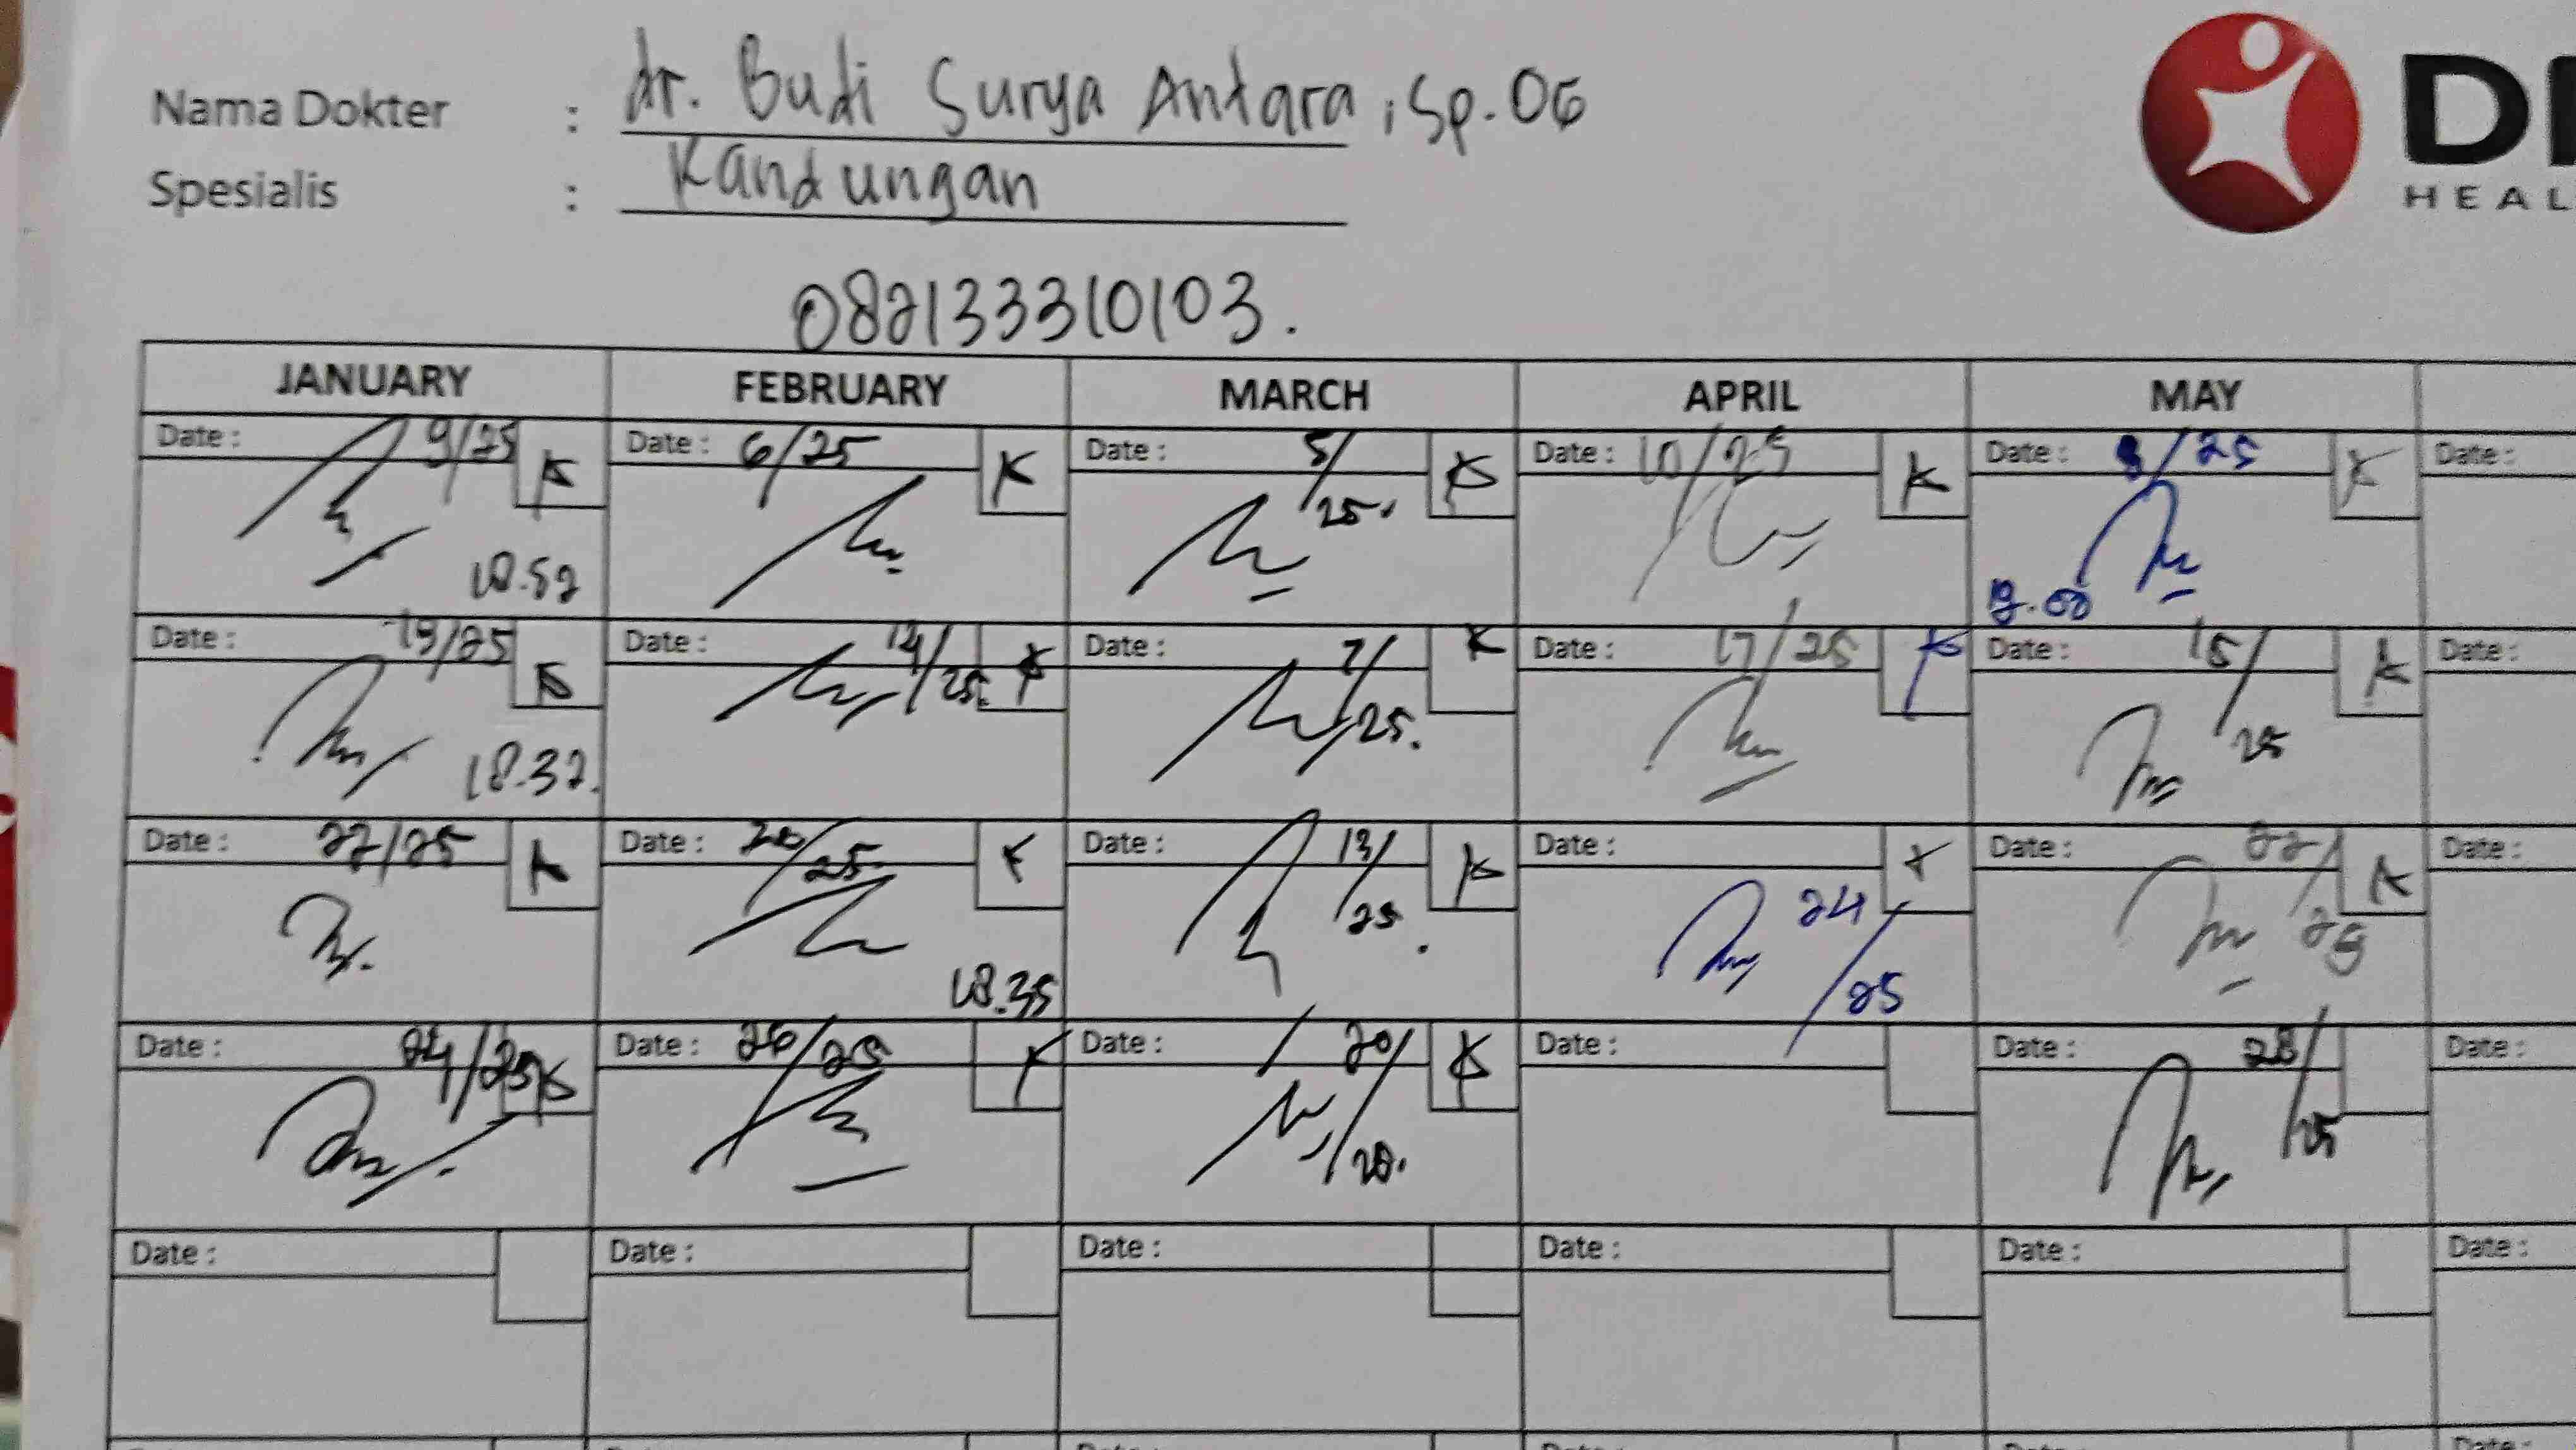 Nama Dokter : dr. Budi Surya Antara, Sp.OG
Spesialis : Kandungan
HEAL
082133310103.
JANUARY FEBRUARY MARCH APRIL MAY
Date : 9/25 K Date : 6/25 K Date : 5/ K Date : 10/25 K Date : 8/25 K Date :
25.
18.52
Date : 19/25 K Date : 14/25. K Date : 7/ K Date : 17/25 K Date : 15/ K Date :
18.32. 25. 25
Date : 22/25 K Date : 20/25. K Date : 13/ K Date : K Date : 22/ K Date :
25. 24/25 25
18.35
Date : 24/25 K Date : 26/25 K Date : 20/ K Date : Date : 28/ Date :
25
Date : Date : Date : Date : Date : Date :